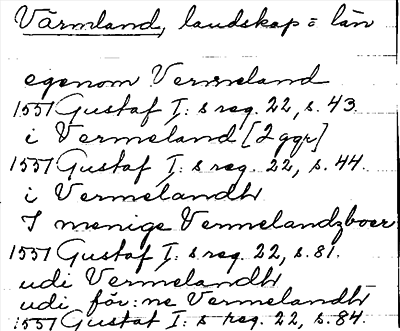 Värmland, landskap = län
egenom Vermeland
1551 Gustaf I:s reg. 22, s. 43.
i Vermeland [2 ggr]
1551 Gustaf I:s reg. 22, s. 44.
i Vermelandh
I menige Vermelandzboer
1551 Gustaf I:s reg. 22, s. 81.
udi Vermelandh
udi för:ne Vermelandh
1551 Gustaf I:s reg. 22, s. 84.